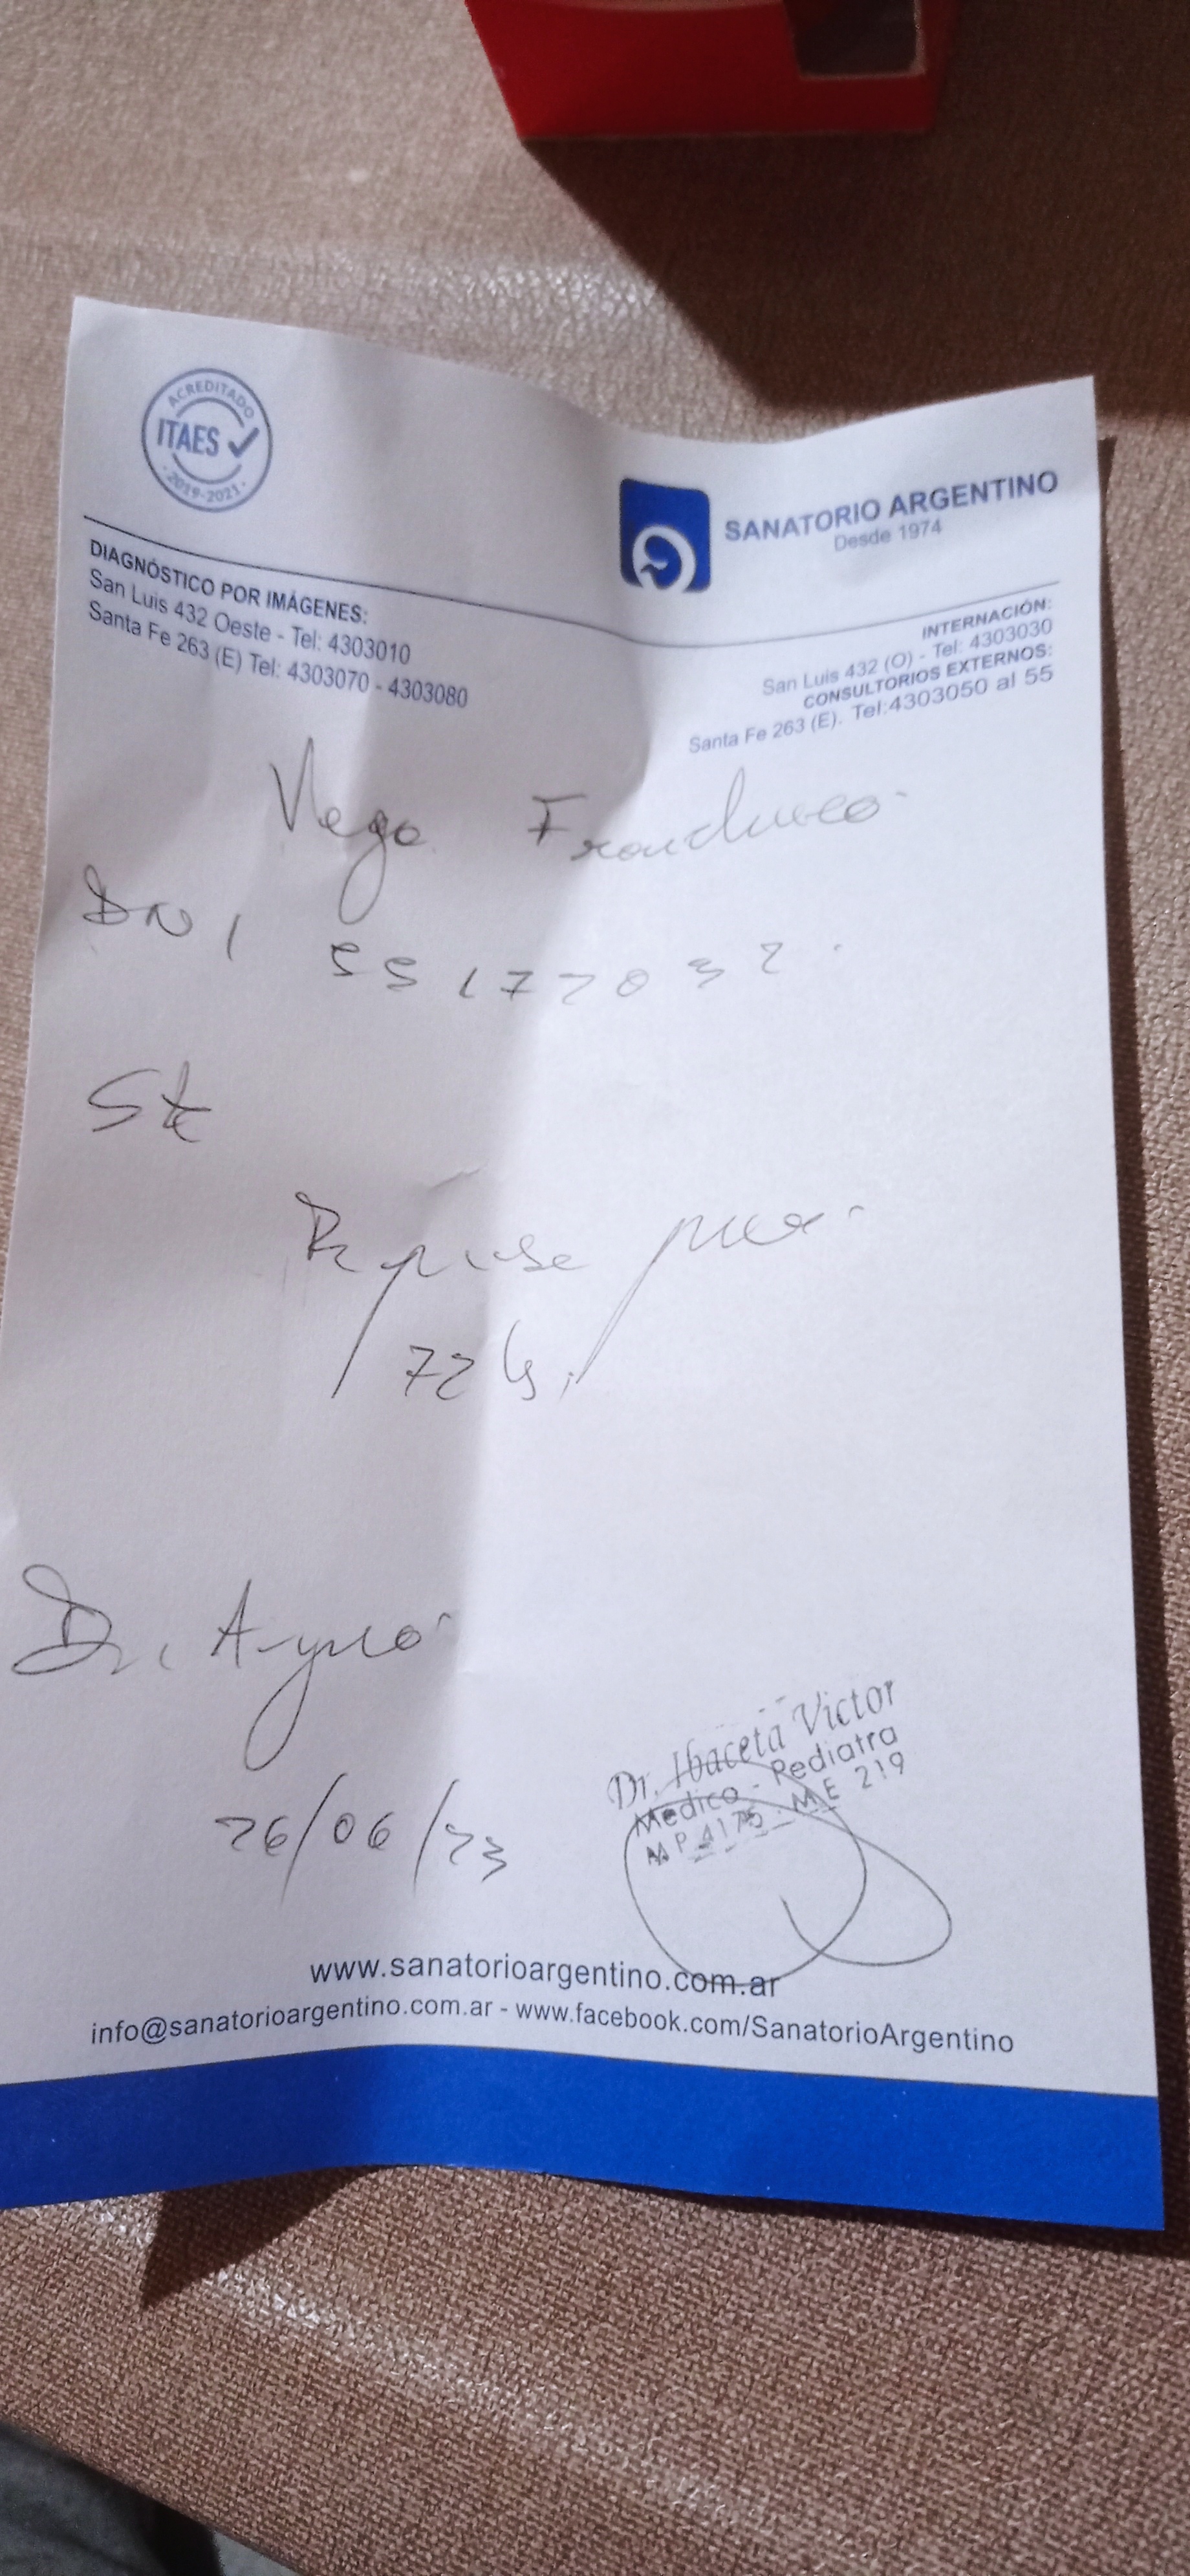 ACREDITADO
ITAES
·2019-2021·
SANATORIO ARGENTINO
Desde 1974
DIAGNÓSTICO POR IMÁGENES:
San Luis 432 Oeste - Tel: 4303010
Santa Fe 263 (E) Tel: 4303070 - 4303080
INTERNACIÓN:
San Luis 432 (O) - Tel: 4303030
CONSULTORIOS EXTERNOS:
Santa Fe 263 (E). Tel:4303050 al 55
Vega
DNI 55177032.
Reposo por
72 hs.
26/06/23
Dr. Ibaceta Victor
Medico - Pediatra
MP 4175 - ME 219
www.sanatorioargentino.com.ar
info@sanatorioargentino.com.ar - www.facebook.com/SanatorioArgentino